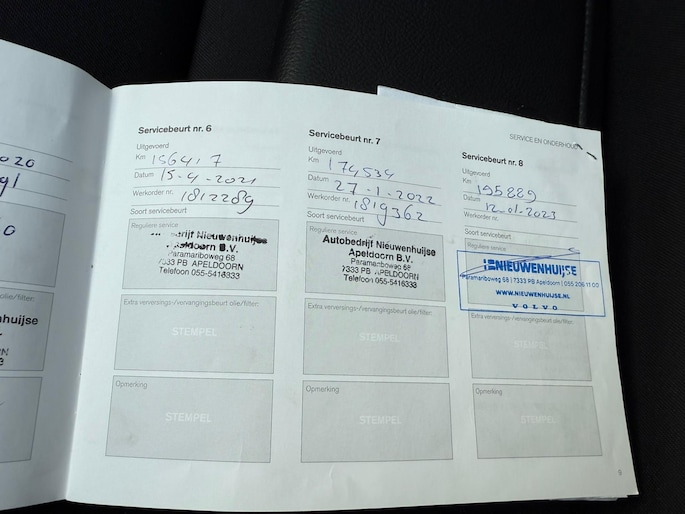 020
g1
olie/filter:
nhuijse
Servicebeurt nr. 6
Uitgevoerd
Km
Datum 15-4-2021
Werkorder nr. 1812289
Soort servicebeurt
Reguliere service
Nieuwenhuijse
Apeldoorn B.V.
Paramariboweg 68
7333 PB APELDOORN
Telefoon 055-5416333
Extra verversings-/vervangingsbeurt olie/filter:
STEMPEL
Opmerking
STEMPEL
Servicebeurt nr. 7
Uitgevoerd
Km 174534
Datum 27-1-2022
Werkorder nr. 1819362
Soort servicebeurt
Reguliere service
Autobedrijf Nieuwenhuijse
Apeldoorn B.V.
Paramariboweg 68
7333 PB APELDOORN
Telefoon 055-5416333
Extra verversings-/vervangingsbeurt olie/filter:
STEMPEL
Opmerking
STEMPEL
SERVICE EN ONDERHOUD
Servicebeurt nr. 8
Uitgevoerd
Km 195889
Datum 12-01-2023
Werkorder nr.
Soort servicebeurt
Reguliere service
NIEUWENHUIJSE
Paramariboweg 68 | 7333 PB Apeldoorn | 055 206 11 00
WWW.NIEUWENHUIJSE.NL
VOLVO
Extra verversings-/vervangingsbeurt olie/filter:
STEMPEL
Opmerking
STEMPEL
9